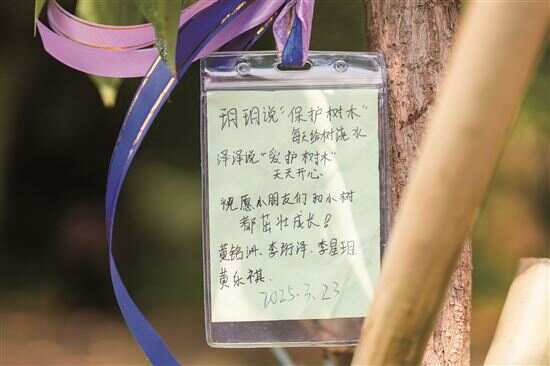 玥玥说“保护树木”
每天给树浇水
泽泽说“爱护树木”
天天开心
祝愿小朋友们和小树
都茁壮成长！
黄铭洲、李珩泽、李星玥
黄乐祺
2025.3.23